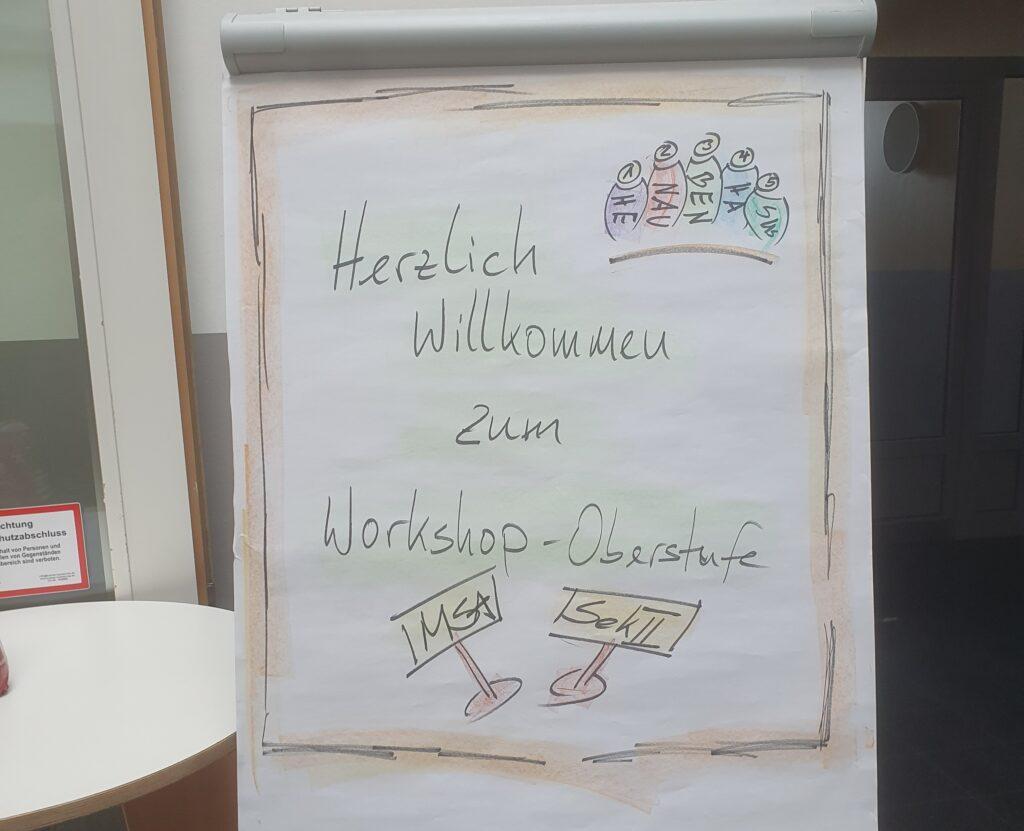 1 2 3 4 5
HE NAU BEN HA
Herzlich
Willkommen
zum
Workshop - Oberstufe
MSA Sek II
chtung
hutzabschluss
halt von Personen und
len von Gegenständen
bereich sind verboten.